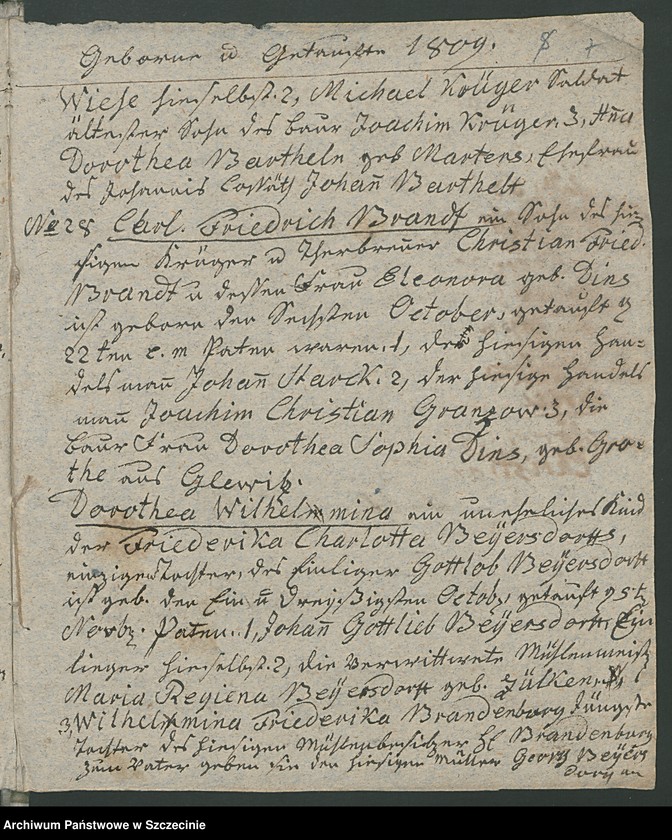 Geborne u Getaufte 1809. 8 7
Wiese hieselbst. 2, Michael Krüger Soldat
ältester Sohn des Baur Joachim Krüger. 3, Ana
Dorothea Bartheln geb Martens, Ehefrau
des Johannis Cossäth Johan̄ Barthelt
No 28 Carl. Friedrich Brandt ein Sohn des hie-
sigen Krüger u Christian Fried.
Brandt u dessen Frau Eleonora geb. Dins
ist geborn den Sechsten October, getauft d
22ten e. m Paten waren. 1, der hiesigen Han-
delsman̄ Johan̄ Starck. 2, der hiesige Handels
man̄ Joachim Christian Granzow. 3, die
Baur Frau Dorothea Sophia Dins, geb. Gro-
the aus Glewitz.
Dorothea Wilhelmmina ein uneheliches Kind
der Friederika Charlotta Beÿersdorffs,
einzige Tochter, des Einlieger Gottlob Beÿersdorff
ist geb. den Ein u Dreÿßigsten Octob, getauft d 5t
Novbr. Paten. 1, Johan̄ Gottlieb Beÿersdorff, Ein
lieger hieselbst. 2, die Verwittwete Mühlenmeist
Maria Regiena Beÿersdorff geb. Zülken,
3, Wilhelmmina Friederika Brandenburg Jüngste
Tochter des hiesigen Mühlenbesitzer H Brandenburg
zum Vater geben sie den hiesigen Müller Georg Beÿers
dorf an
Archiwum Państwowe w Szczecinie